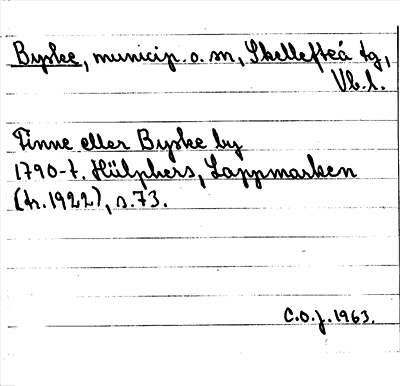 Byske, municip. o. sn, Skellefteå tg,
Vb.l.
Finne eller Byske by
1790-t. Hülphers, Lappmarken
(tr. 1922), s. 73.
C.O.J. 1963.